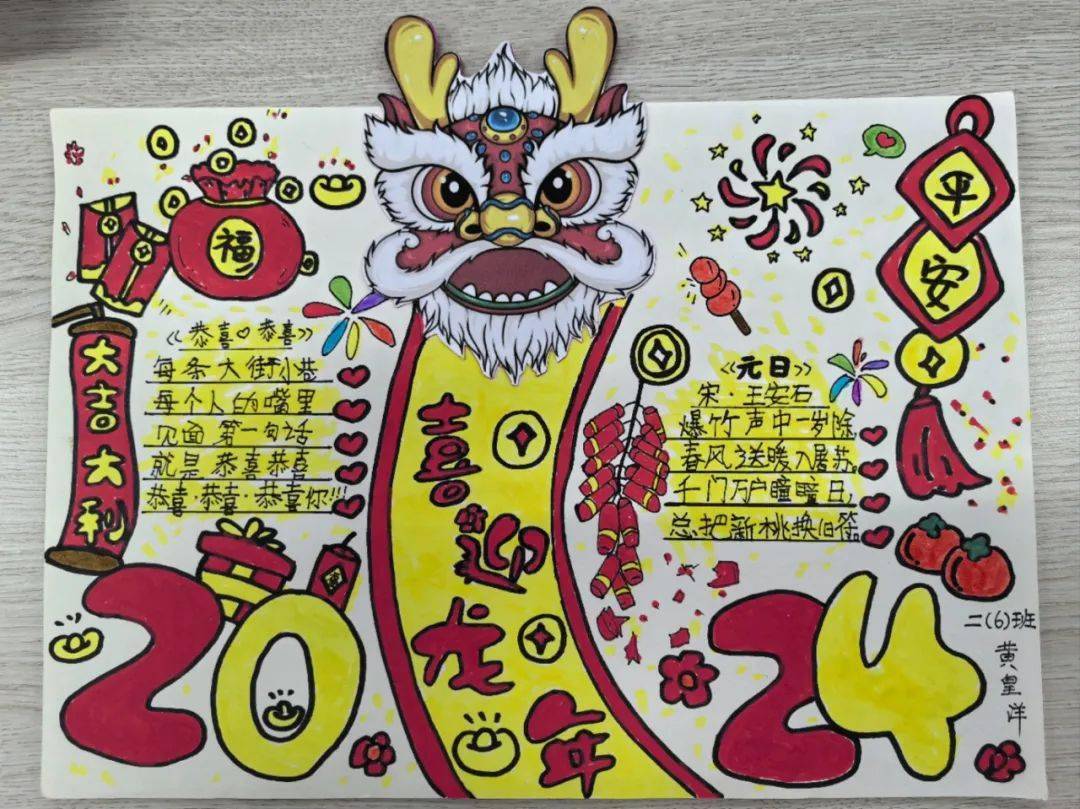 福
大吉大利
《恭喜♡恭喜》
每条大街小巷
每个人的嘴里
见面第一句话
就是恭喜恭喜
恭喜·恭喜·恭喜你!!!
喜迎龙年
平安
《元日》
宋·王安石
爆竹声中一岁除
春风送暖入屠苏,
千门万户曈曈日,
总把新桃换旧符
2024
二(6)班
黄皇洋